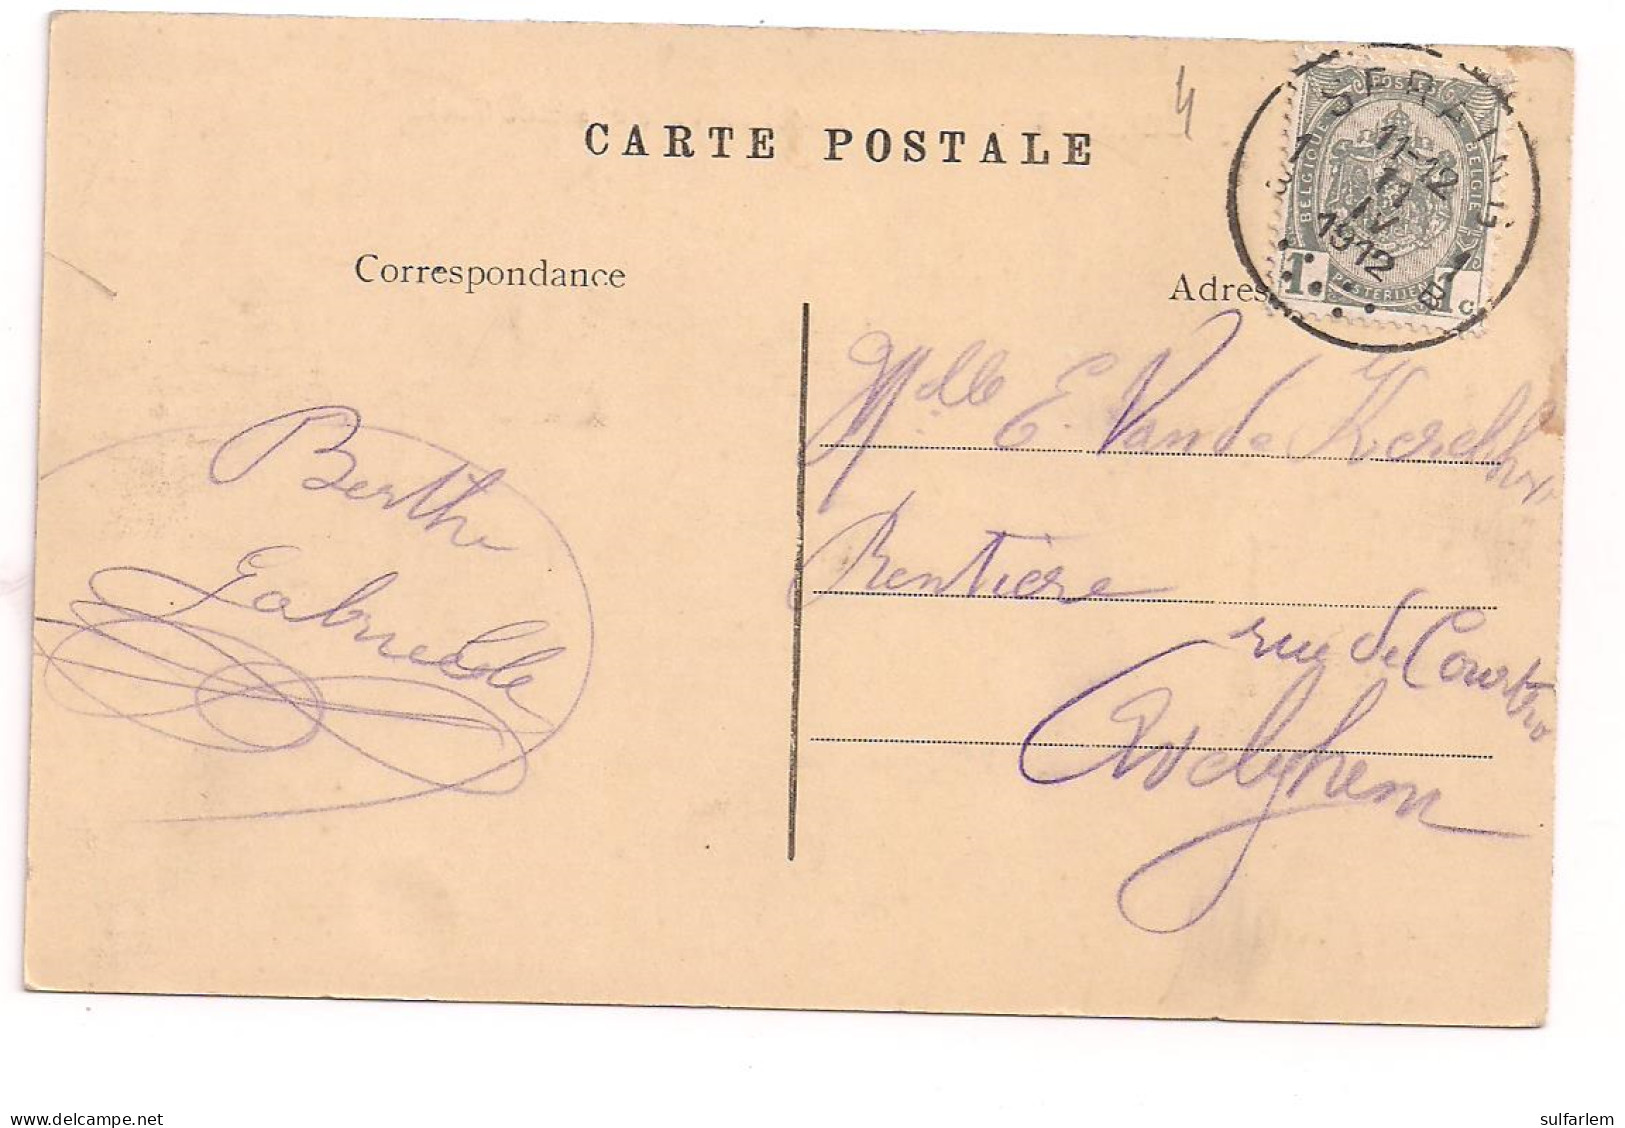 4
CARTE POSTALE
SERAING
1 1
11-12
11
IV
1912
B
POSTES
BELGIQUE BELGIE
POSTERIJEN
1 1c
Correspondance
Adres
Berthe
Gabrielle
Melle E. Van de Kerckhove
Rentière
rue de Courtrai
Avelghem
delcampe.net
sulfarlem